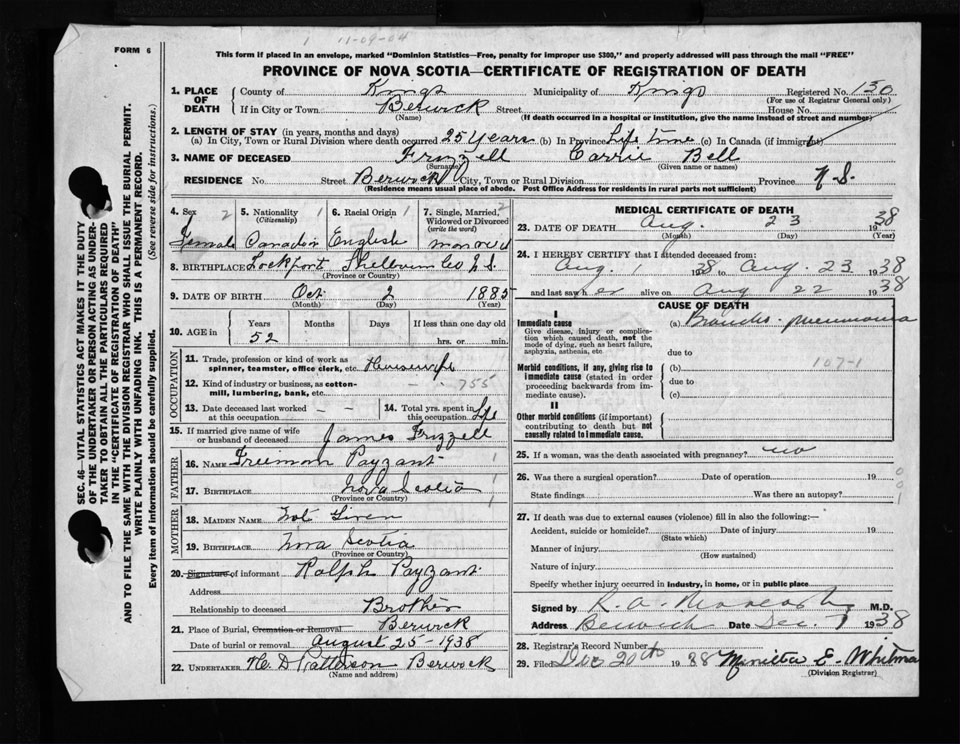 1 11-09-04
FORM 6
This form if placed in an envelope, marked "Dominion Statistics—Free, penalty for improper use $300," and properly addressed will pass through the mail "FREE"
PROVINCE OF NOVA SCOTIA—CERTIFICATE OF REGISTRATION OF DEATH
SEC. 46—VITAL STATISTICS ACT MAKES IT THE DUTY
OF THE UNDERTAKER OR PERSON ACTING AS UNDER-
TAKER TO OBTAIN ALL THE PARTICULARS REQUIRED
IN THE "CERTIFICATE OF REGISTRATION OF DEATH"
AND TO FILE THE SAME WITH THE DIVISION REGISTRAR WHO SHALL ISSUE THE BURIAL PERMIT.
WRITE PLAINLY WITH UNFADING INK. THIS IS A PERMANENT RECORD.
Every item of information should be carefully supplied. (See reverse side for instructions.)
1. PLACE OF DEATH County of Kings Municipality of Kings Registered No. 150
(For use of Registrar General only)
If in City or Town Berwick Street House No.
(Name) (If death occurred in a hospital or institution, give the name instead of street and number)
2. LENGTH OF STAY (in years, months and days)
(a) In City, Town or Rural Division where death occurred 25 Years (b) In Province Life time (c) In Canada (if immigrant)
3. NAME OF DECEASED Frizzell Carrie Bell
(Surname) (Given name or names)
RESIDENCE No. Street Berwick City, Town or Rural Division Province N.S.
(Residence means usual place of abode. Post Office Address for residents in rural parts not sufficient)
4. Sex 2 5. Nationality 1 6. Racial Origin 1 7. Single, Married, 2
(Citizenship) Widowed or Divorced
(write the word)
Female Canadian English married
8. BIRTHPLACE Lockport Shelburn Co N.S.
(Province or Country)
9. DATE OF BIRTH Oct. 2 1885
(Month) (Day) (Year)
10. AGE in Years Months Days If less than one day old
52 hrs. or min.
OCCUPATION
11. Trade, profession or kind of work as
spinner, teamster, office clerk, etc. Housewife
12. Kind of industry or business, as cotton-
mill, lumbering, bank, etc. 755
13. Date deceased last worked at this occupation 14. Total yrs. spent in this occupation Life
15. If married give name of wife
or husband of deceased James Frizzell
FATHER
16. NAME Freeman Payzant 1
17. BIRTHPLACE Nova Scotia 1
(Province or Country)
MOTHER
18. MAIDEN NAME Not Given
19. BIRTHPLACE Nova Scotia
(Province or Country)
20. Signature of informant Ralph Payzant
Address
Relationship to deceased Brother
21. Place of Burial, Cremation or Removal Berwick
Date of burial or removal August 25-1938
22. UNDERTAKER H. D Patterson Berwick
(Name and address)
MEDICAL CERTIFICATE OF DEATH
23. DATE OF DEATH Aug. 23 1938
(Month) (Day) (Year)
24. I HEREBY CERTIFY that I attended deceased from:
Aug. 1 1938 to Aug. 23 1938
and last saw her alive on Aug 22 1938
CAUSE OF DEATH
I
Immediate cause (a) Broncho-pneumonia
Give disease, injury or complica-
tion which caused death, not the
mode of dying, such as heart failure,
asphyxia, asthenia, etc
due to
107-1
Morbid conditions, if any, giving rise to (b)
immediate cause (stated in order due to
proceeding backwards from im-
mediate cause). (c)
II
Other morbid conditions (if important)
contributing to death but not
causally related to immediate cause.
25. If a woman, was the death associated with pregnancy? no
26. Was there a surgical operation? Date of operation 19 0
State findings Was there an autopsy? 0
1
27. If death was due to external causes (violence) fill in also the following:—
Accident, suicide or homicide? Date of injury 19
(State which)
Manner of injury
(How sustained)
Nature of injury
Specify whether injury occurred in industry, in home, or in public place
Signed by R. A. M.D.
Address Berwick Date Dec. 7 1938
28. Registrar's Record Number
29. Filed Dec 20th 1938 E. Whitman
(Division Registrar)